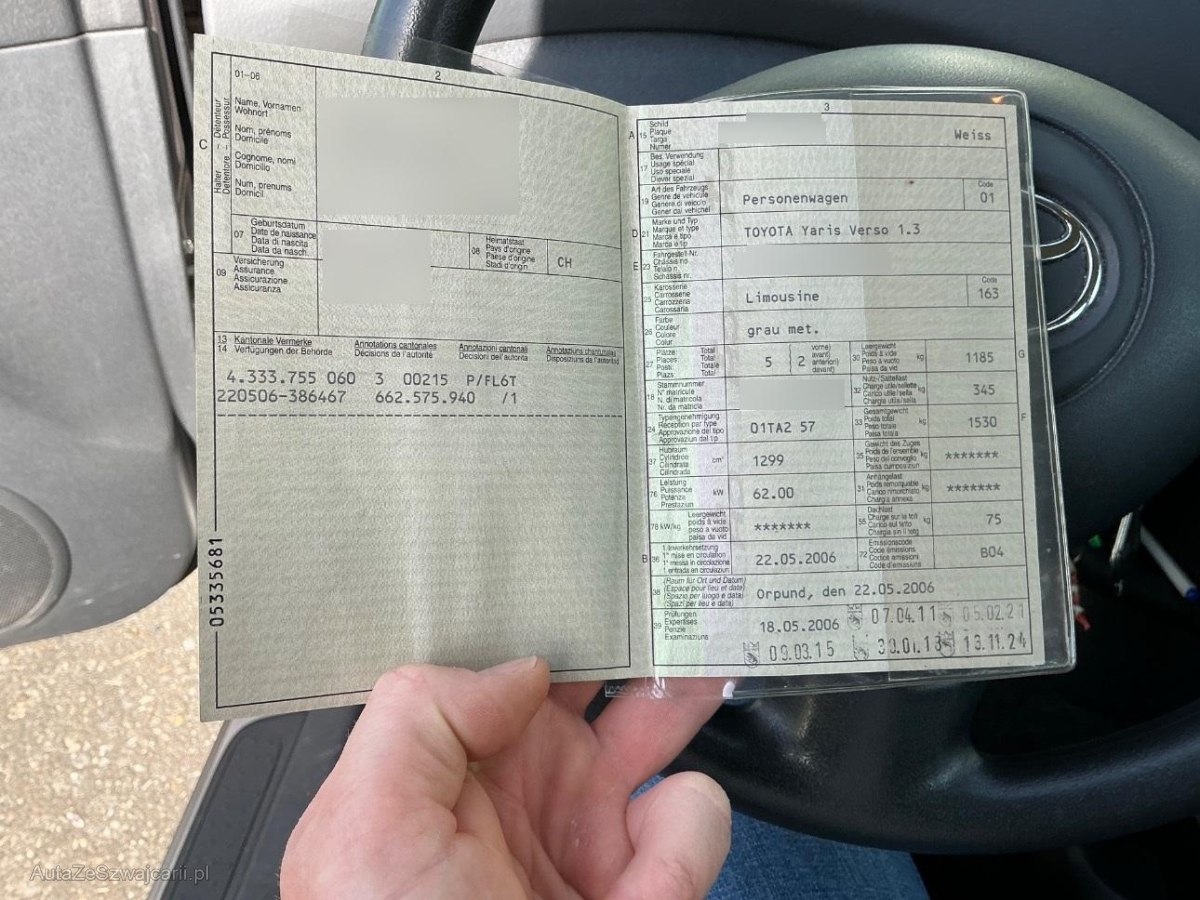 2
01-06
C
Halter – Détenteur
Detentore – Possessur
Name, Vornamen
Wohnort
Nom, prénoms
Domicile
Cognome, nomi
Domicilio
Num, prenums
Domicil
07
Geburtsdatum
Date de naissance
Data di nascita
Data da nasch.
08
Heimatstaat
Pays d'origine
Paese d'origine
Stadi d'origin
CH
09
Versicherung
Assurance
Assicurazione
Assicuranza
13 Kantonale Vermerke
14 Verfügungen der Behörde
Annotations cantonales
Décisions de l'autorité
Annotazioni cantonali
Decisioni dell'autorità
Annotaziuns chantunalas
Disposiziuns da l'autoritad
4.333.755 060 3 00215 P/FL6T
220506-386467 662.575.940 /1
05335681
3
A 15
Schild
Plaque
Targa
Numer
Weiss
17
Bes. Verwendung
Usage spécial
Uso speciale
Diever spezial
19
Art des Fahrzeugs
Genre de véhicule
Genere di veicolo
Gener dal vehichel
Personenwagen
Code
01
D 21
Marke und Typ
Marque et type
Marca e tipo
Marca e tip
TOYOTA Yaris Verso 1.3
E 23
Fahrgestell-Nr.
Châssis no
Telaio n.
Schassis nr.
25
Karosserie
Carrosserie
Carrozzeria
Carossaria
Limousine
Code
163
26
Farbe
Couleur
Colore
Colur
grau met.
27
Plätze: Total
Places: Total
Posti: Totale
Plazs: Total
5
2
vorne)
avant)
anteriori)
davant)
30
Leergewicht
Poids à vide
Peso a vuoto
Paisa da vid
kg
1185
G
18
Stammnummer
N° matricule
N. di matricola
Nr. da matricla
32
Nutz-/Sattellast
Charge utile/sellette
Carico utile/sella
Chargia utila/sella
kg
345
24
Typengenehmigung
Réception par type
Approvazione del tipo
Approvaziun dal tip
01TA2 57
33
Gesamtgewicht
Poids total
Peso totale
Paisa totala
kg
1530
F
37
Hubraum
Cylindrée
Cilindrata
Cilindrada
cm³
1299
35
Gewicht des Zuges
Poids de l'ensemble
Peso del convoglio
Paisa cumposiziun
kg
*******
76
Leistung
Puissance
Potenza
Prestaziun
kW
62.00
31
Anhängelast
Poids remorquable
Carico rimorchiato
Chargia annexa
kg
*******
78 kW/kg
Leergewicht
poids à vide
peso a vuoto
paisa da vid
*******
55
Dachlast
Charge sur le toit
Carico sul tetto
Chargia sin il tetg
kg
75
B 36
1. Inverkehrsetzung
1re mise en circulation
1a messa in circolazione
1. entrada en circulaziun
22.05.2006
72
Emissionscode
Code émissions
Codice emissioni
Code d'emissiuns
B04
38
(Raum für Ort und Datum)
(Espace pour lieu et date)
(Spazio per luogo e data)
(Spazi per lieu e data)
Orpund, den 22.05.2006
39
Prüfungen
Expertises
Perizie
Examinaziuns
18.05.2006
07.04.11
05.02.21
09.03.15
30.01.18
13.11.24
AutaZeSzwajcarii.pl